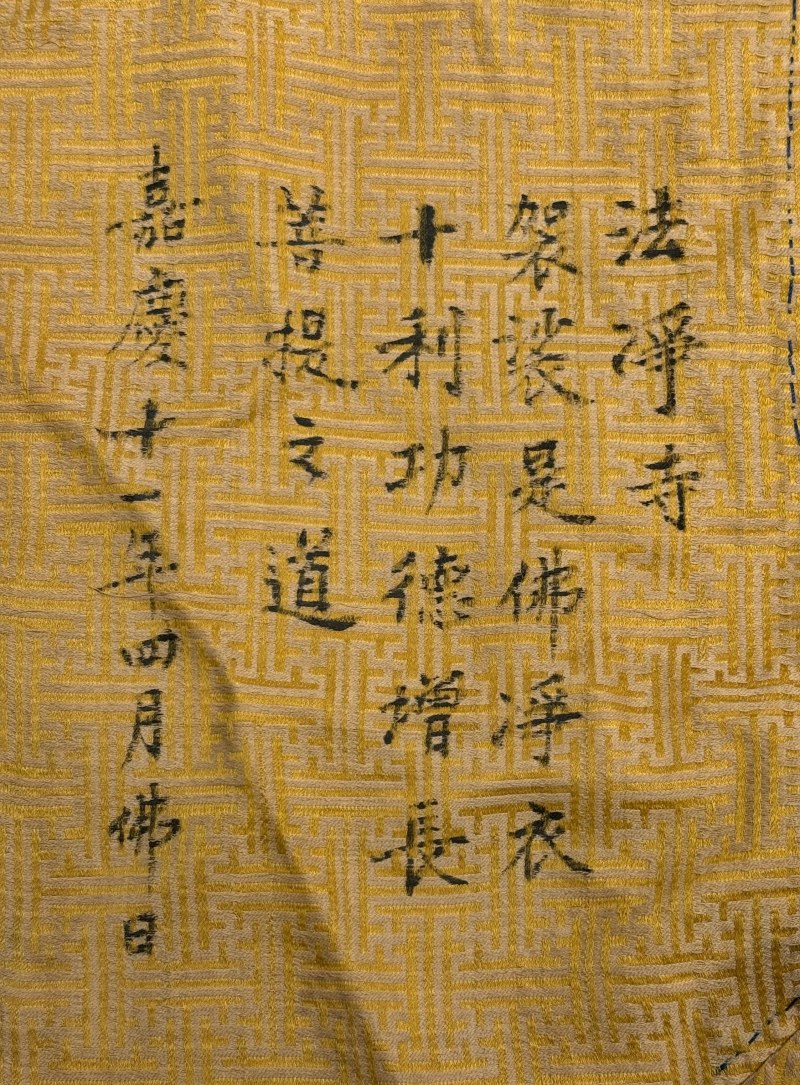 法凈寺
袈裟是佛凈衣
十利功德增長
菩提之道
嘉慶十一年四月佛日